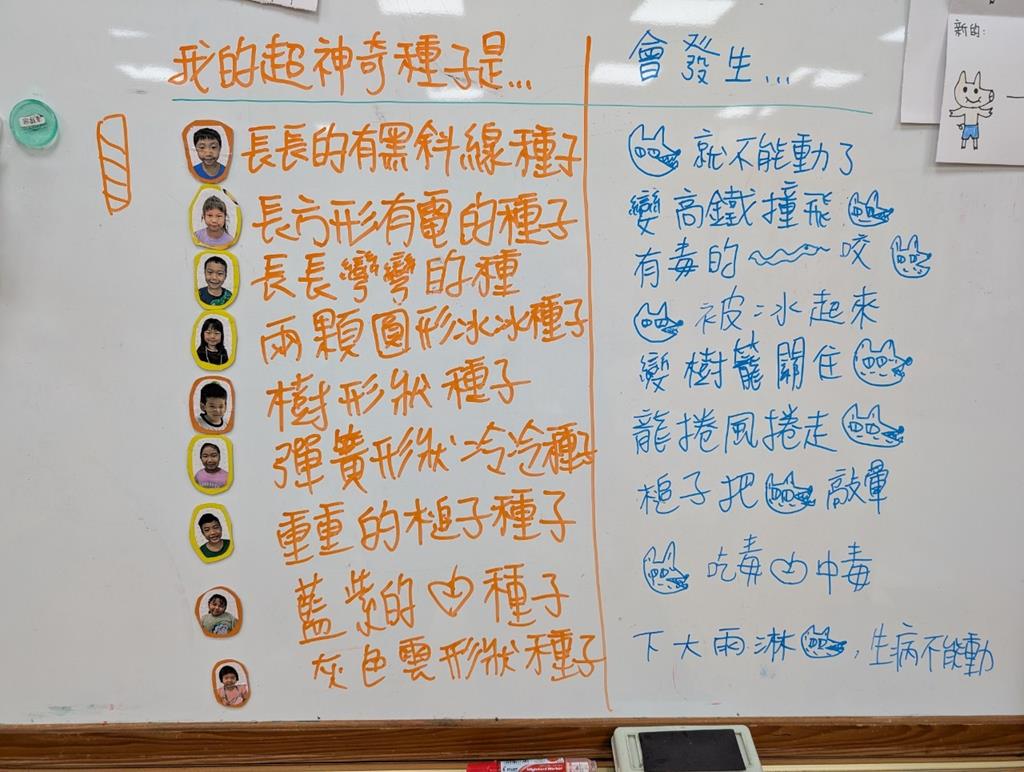 我的超神奇種子是... 會發生...
新的:
長長的有黑斜線種子 就不能動了
長方形有電的種子 變高鐵撞飛
長長彎彎的種 有毒的 咬
兩顆圓形冰冰種子 被冰起來
樹形狀種子 變樹籠關住
彈簧形狀冷冷種子 龍捲風捲走
重重的槌子種子 槌子把 敲暈
藍紫的 種子 吃毒 中毒
灰色雲形狀種子 下大雨淋 ,生病不能動